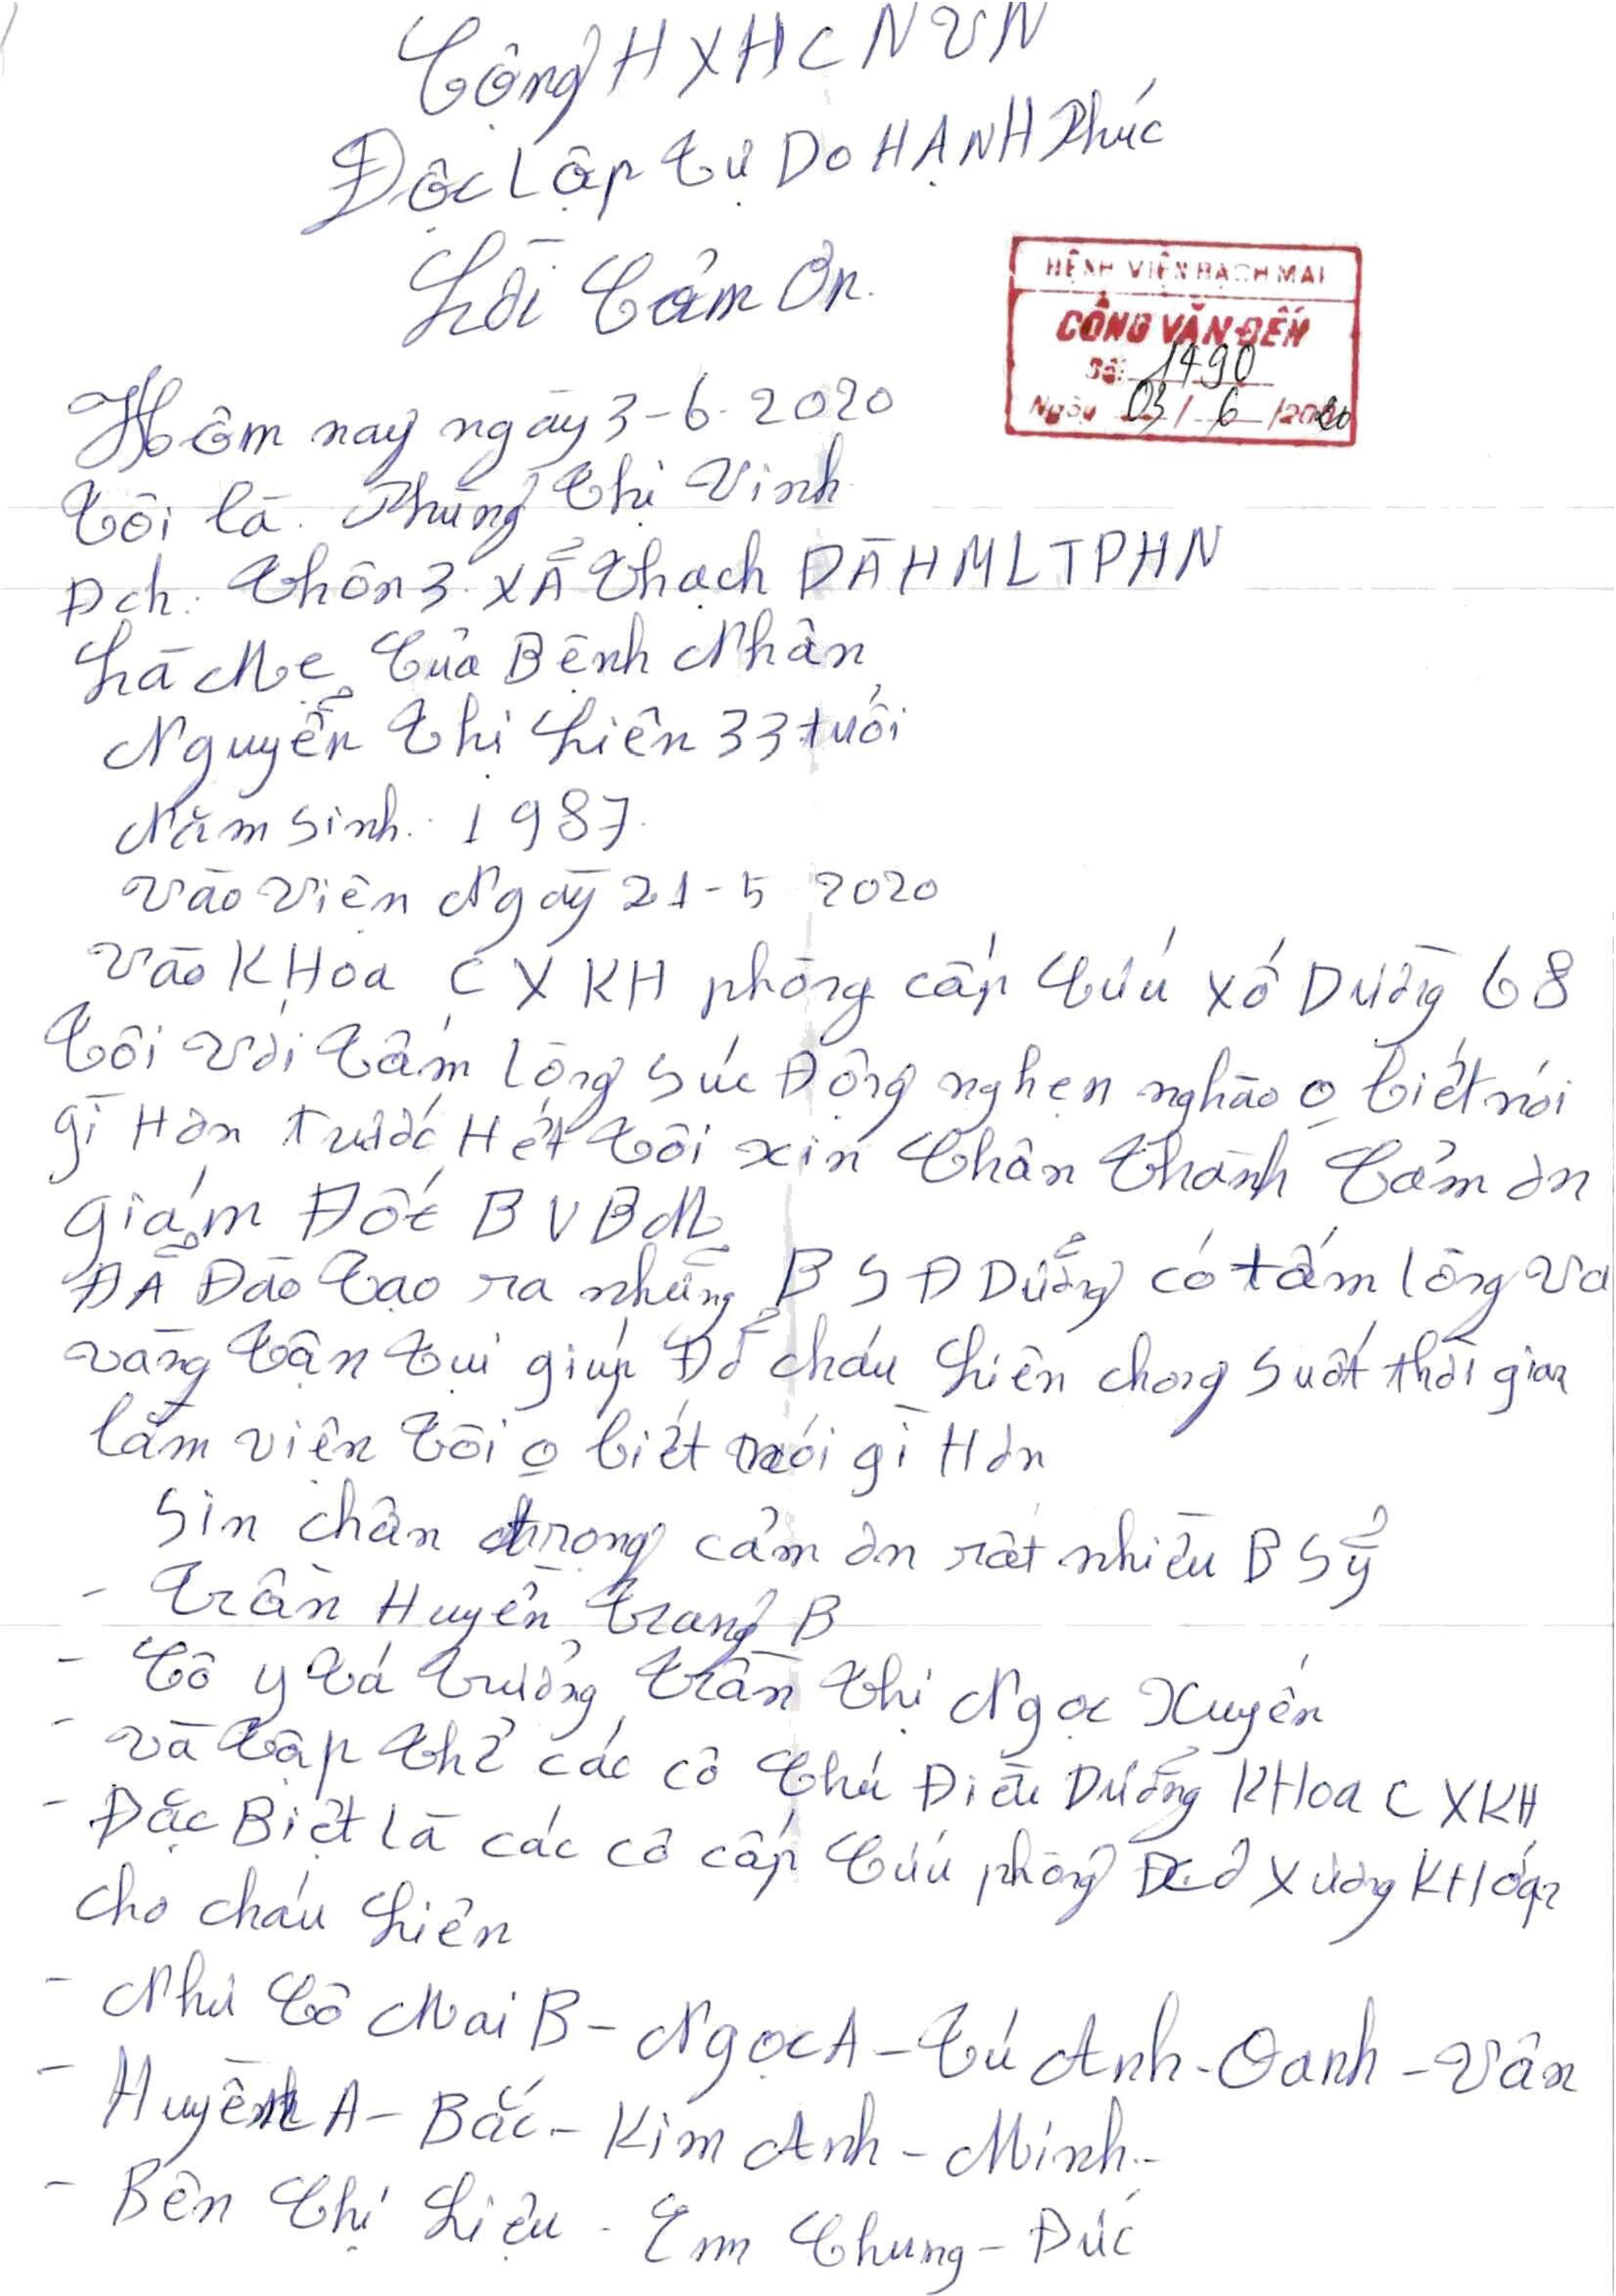 Cộng H X H C N V N
Độc Lập Tự Do HẠNH Phúc
Lời Cảm Ơn.
BỆNH VIỆN BẠCH MAI
CÔNG VĂN ĐẾN
Số: 1490
Ngày 03 / 6 / 2020
Hôm nay ngày 3-6-2020
Tôi là. Phùng Thị Vinh
Đch: Thôn 3. XÃ Thạch ĐÀ H M L T P H N
Là Mẹ Của Bệnh Nhân
Nguyễn Thị Liên 33 tuổi
Năm sinh: 1987.
Vào Viện Ngày 21-5 2020
Vào KHoa C X KH phòng cấp Cứu xố Dường 68
Tôi Với Tấm lòng súc Động nghẹn nghào o biết nói
gì Hơn trước Hết Tôi xin Chân Thành Cảm ơn
Giám Đốc B V B M
ĐÃ Đào Tạo ra những B S Đ Dưỡng có tấm lòng va
vàng Tận Tụi giúp Đỡ cháu Liên chong suốt thời gian
lằm viện Tôi o biết nói gì Hơn
Sin chân trọng cảm ơn rất nhiều B Sỹ
- Trần Huyền Trang B
- Cô y Tá Trưởng Trần Thị Ngọc Xuyến
- Và Tập Thể các cô Chú Điều Dưỡng KHoa C XKH
- Đặc Biệt là các cô cấp Cứu phòng Cơ Xương KHớp
cho cháu Liên
- Như Cô Mai B - Ngọc A - Tú Anh - Oanh - Vân
- Huyền A - Bắc - Kim Anh - Minh -
- Bên Chị Liệu - Em Chung - Đức